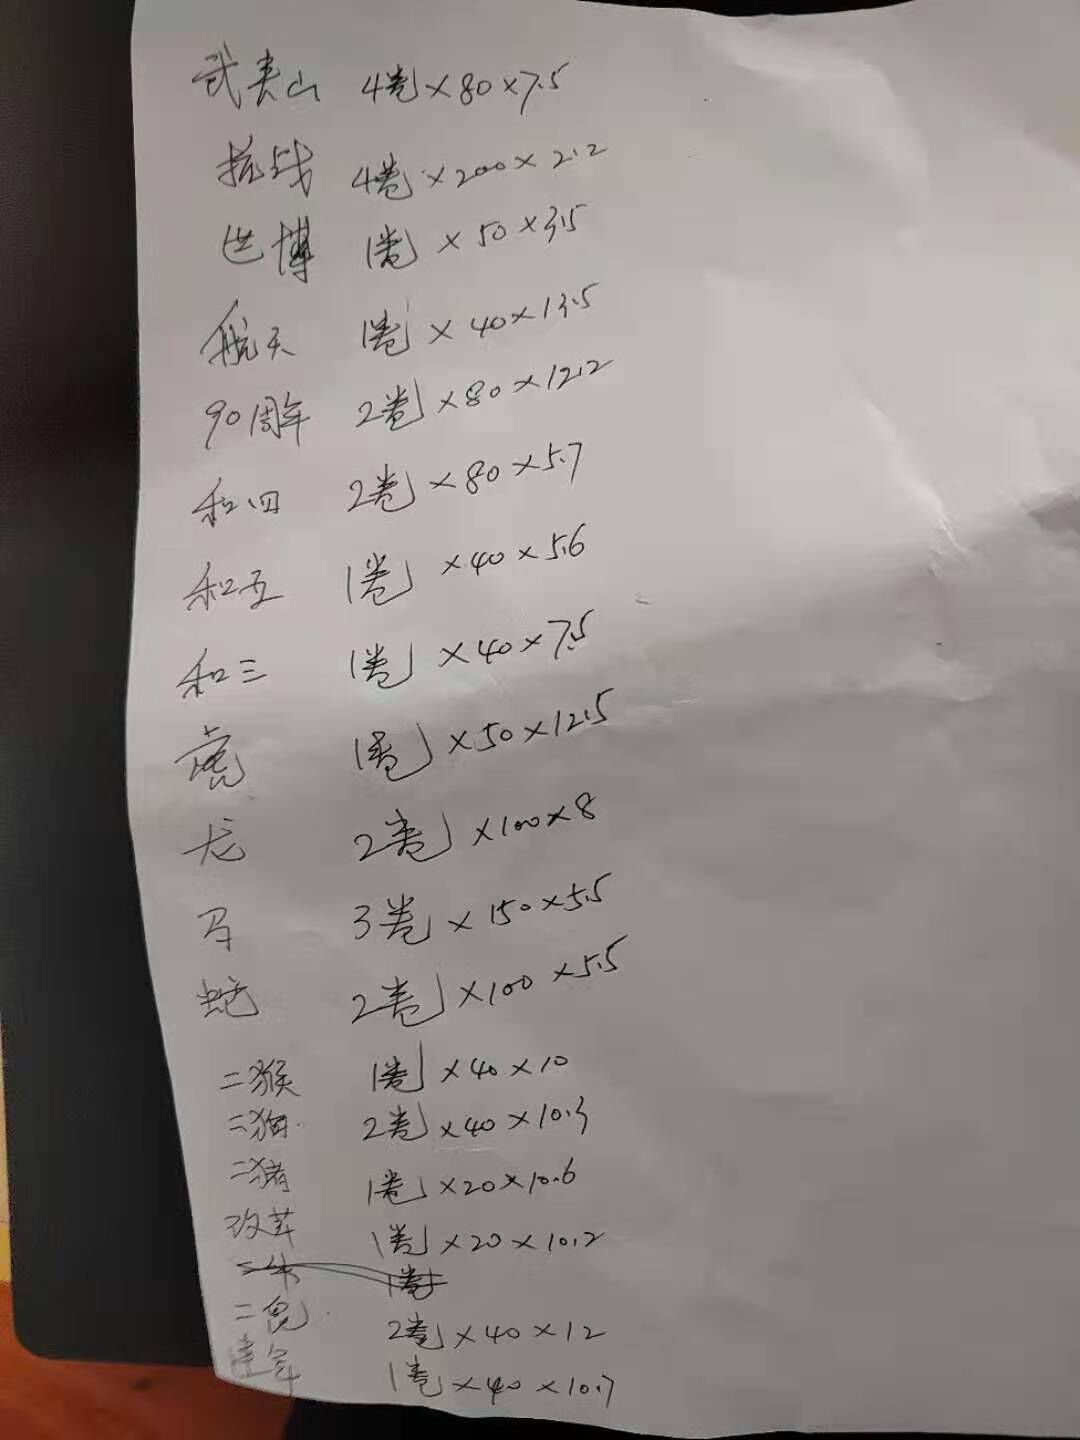 武夷山 4卷×80×7.5
抗战 4卷×200×2.2
世博 1卷×50×3.5
航天 1卷×40×13.5
90周年 2卷×80×12.2
和四 2卷×80×5.7
和五 1卷×40×5.6
和三 1卷×40×7.5
虎 1卷×50×12.5
龙 2卷×100×8
马 3卷×150×5.5
蛇 2卷×100×5.5
二猴 1卷×40×10
二狗 2卷×40×10.3
二猪 1卷×20×10.6
改革 1卷×20×10.2
二牛 1卷
二兔 2卷×40×12
建军 1卷×40×10.7